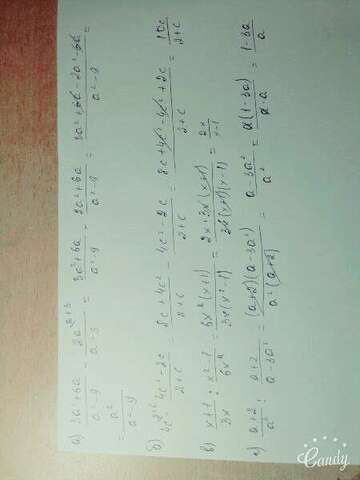 а) (3a²+6a)/(a²-9) - 2a^(a+3)/(a-3) = (3a²+6a)/(a²-9) - (2a²+6a)/(a²-9) = (3a²+6a-2a²-6a)/(a²-9) =
= a²/(a²-9)
б) 4c^(2+c) - (4c²-2c)/(2+c) = (8c+4c²)/(2+c) - (4c²-2c)/(2+c) = (8c+4c²-4c²+2c)/(2+c) = 10c/(2+c)
в) (x+1)/3x : (x²-1)/6x² = 6x²(x+1)/3x(x²-1) = 2x·3x(x+1)/3x(x+1)(x-1) = 2x/(x-1)
г) (a+2)/a² : (a+2)/(a-3a²) = (a+2)(a-3a²)/a²(a+2) = (a-3a²)/a² = a(1-3a)/a·a = (1-3a)/a
Candy